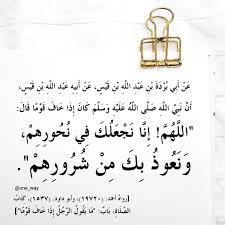 عَنْ أَبِي بُرْدَةَ بْنِ عَبْدِ اللَّهِ بْنِ قَيْسٍ، عَنْ أَبِيهِ عَبْدِ اللَّهِ بْنِ قَيْسٍ،
أَنَّ نَبِيَّ اللَّهِ صَلَّى اللَّهُ عَلَيْهِ وَسَلَّمَ كَانَ إِذَا خَافَ قَوْمًا قَالَ:
"اللَّهُمَّ! إِنَّا نَجْعَلُكَ فِي نُحُورِهِمْ،
وَنَعُوذُ بِكَ مِنْ شُرُورِهِمْ".
@one_way
[رَوَاهُ أحمد: (١٩٧٢٠)، وأبو داود: (١٥٣٧)، كِتَابُ
الصَّلَاةِ، بَابُ: "مَا يَقُولُ الرَّجُلُ إِذَا خَافَ قَوْمًا"]